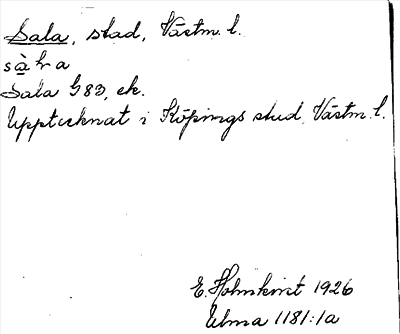 Sala, stad, Västm. l.
sàla
Sala G83, ek.
Upptecknat i Köpings stad, Västm. l.
E. Holmkvist 1926
Ulma 1181:1a